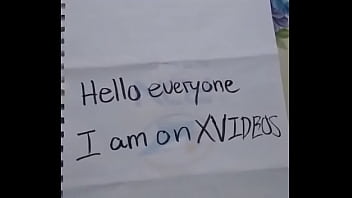 Hello everyone
I am on XVIDEOS